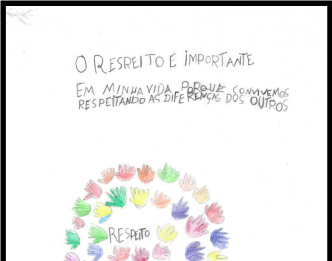 O RESPEITO E IMPORTANTE
EM MINHA VIDA PORQUE CONVIVEMOS
RESPEITANDO AS DIFERENSAS DOS OUTROS
RESPEITO